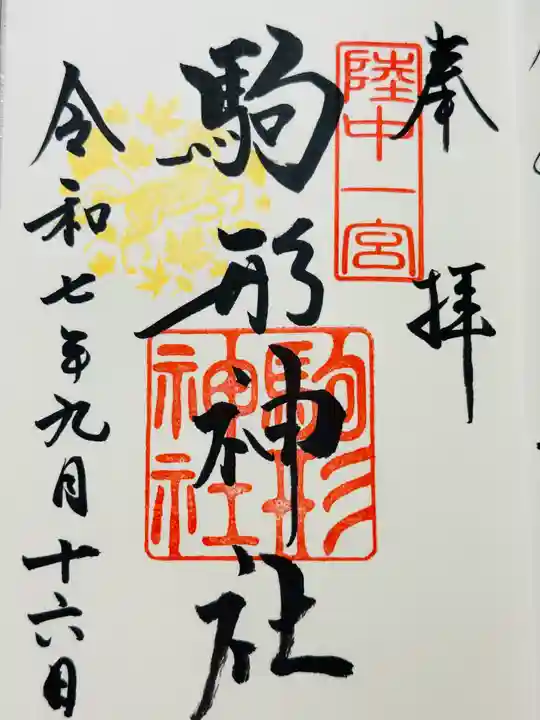 奉拝
陸中一宮
駒形神社
駒形
神社
令和七年九月十六日